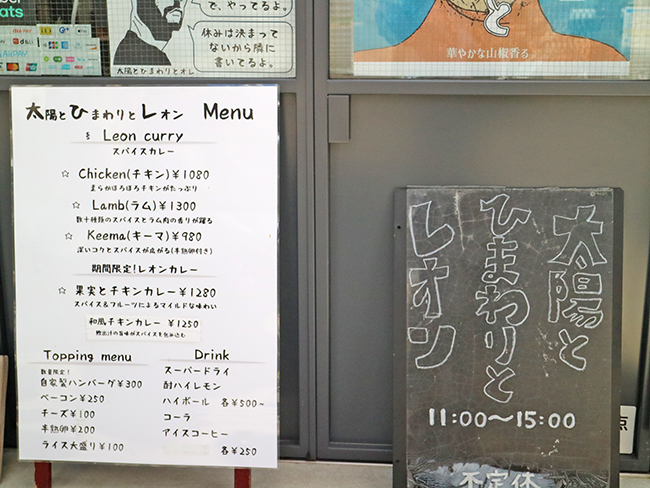 で、やってるよ。
休みは決まって
ないから隣に
書いてるよ。
太陽とひまわりとオレ
と
華やかな山椒香る
太陽とひまわりとレオン Menu
Leon curry
スパイスカレー
☆ Chicken(チキン)￥1080
まろかほろほろチキンがたっぷり
☆ Lamb(ラム)￥1300
数十種類のスパイスとラム肉の香りが躍る
☆ Keema(キーマ)￥980
深いコクとスパイスが広がる(半熟卵付き)
期間限定!レオンカレー
☆ 果実とチキンカレー￥1280
スパイス&フルーツによるマイルドな味わい
和風チキンカレー ￥1250
鰹出汁の旨味がスパイスを包み込む
Topping menu
数量限定!
自家製ハンバーグ￥300
ベーコン￥250
チーズ￥100
半熟卵￥200
ライス大盛り￥100
Drink
スーパードライ
酎ハイレモン
ハイボール 各￥500~
コーラ
アイスコーヒー
各￥250
太陽と
ひまわりと
レオン
11:00~15:00
不定休